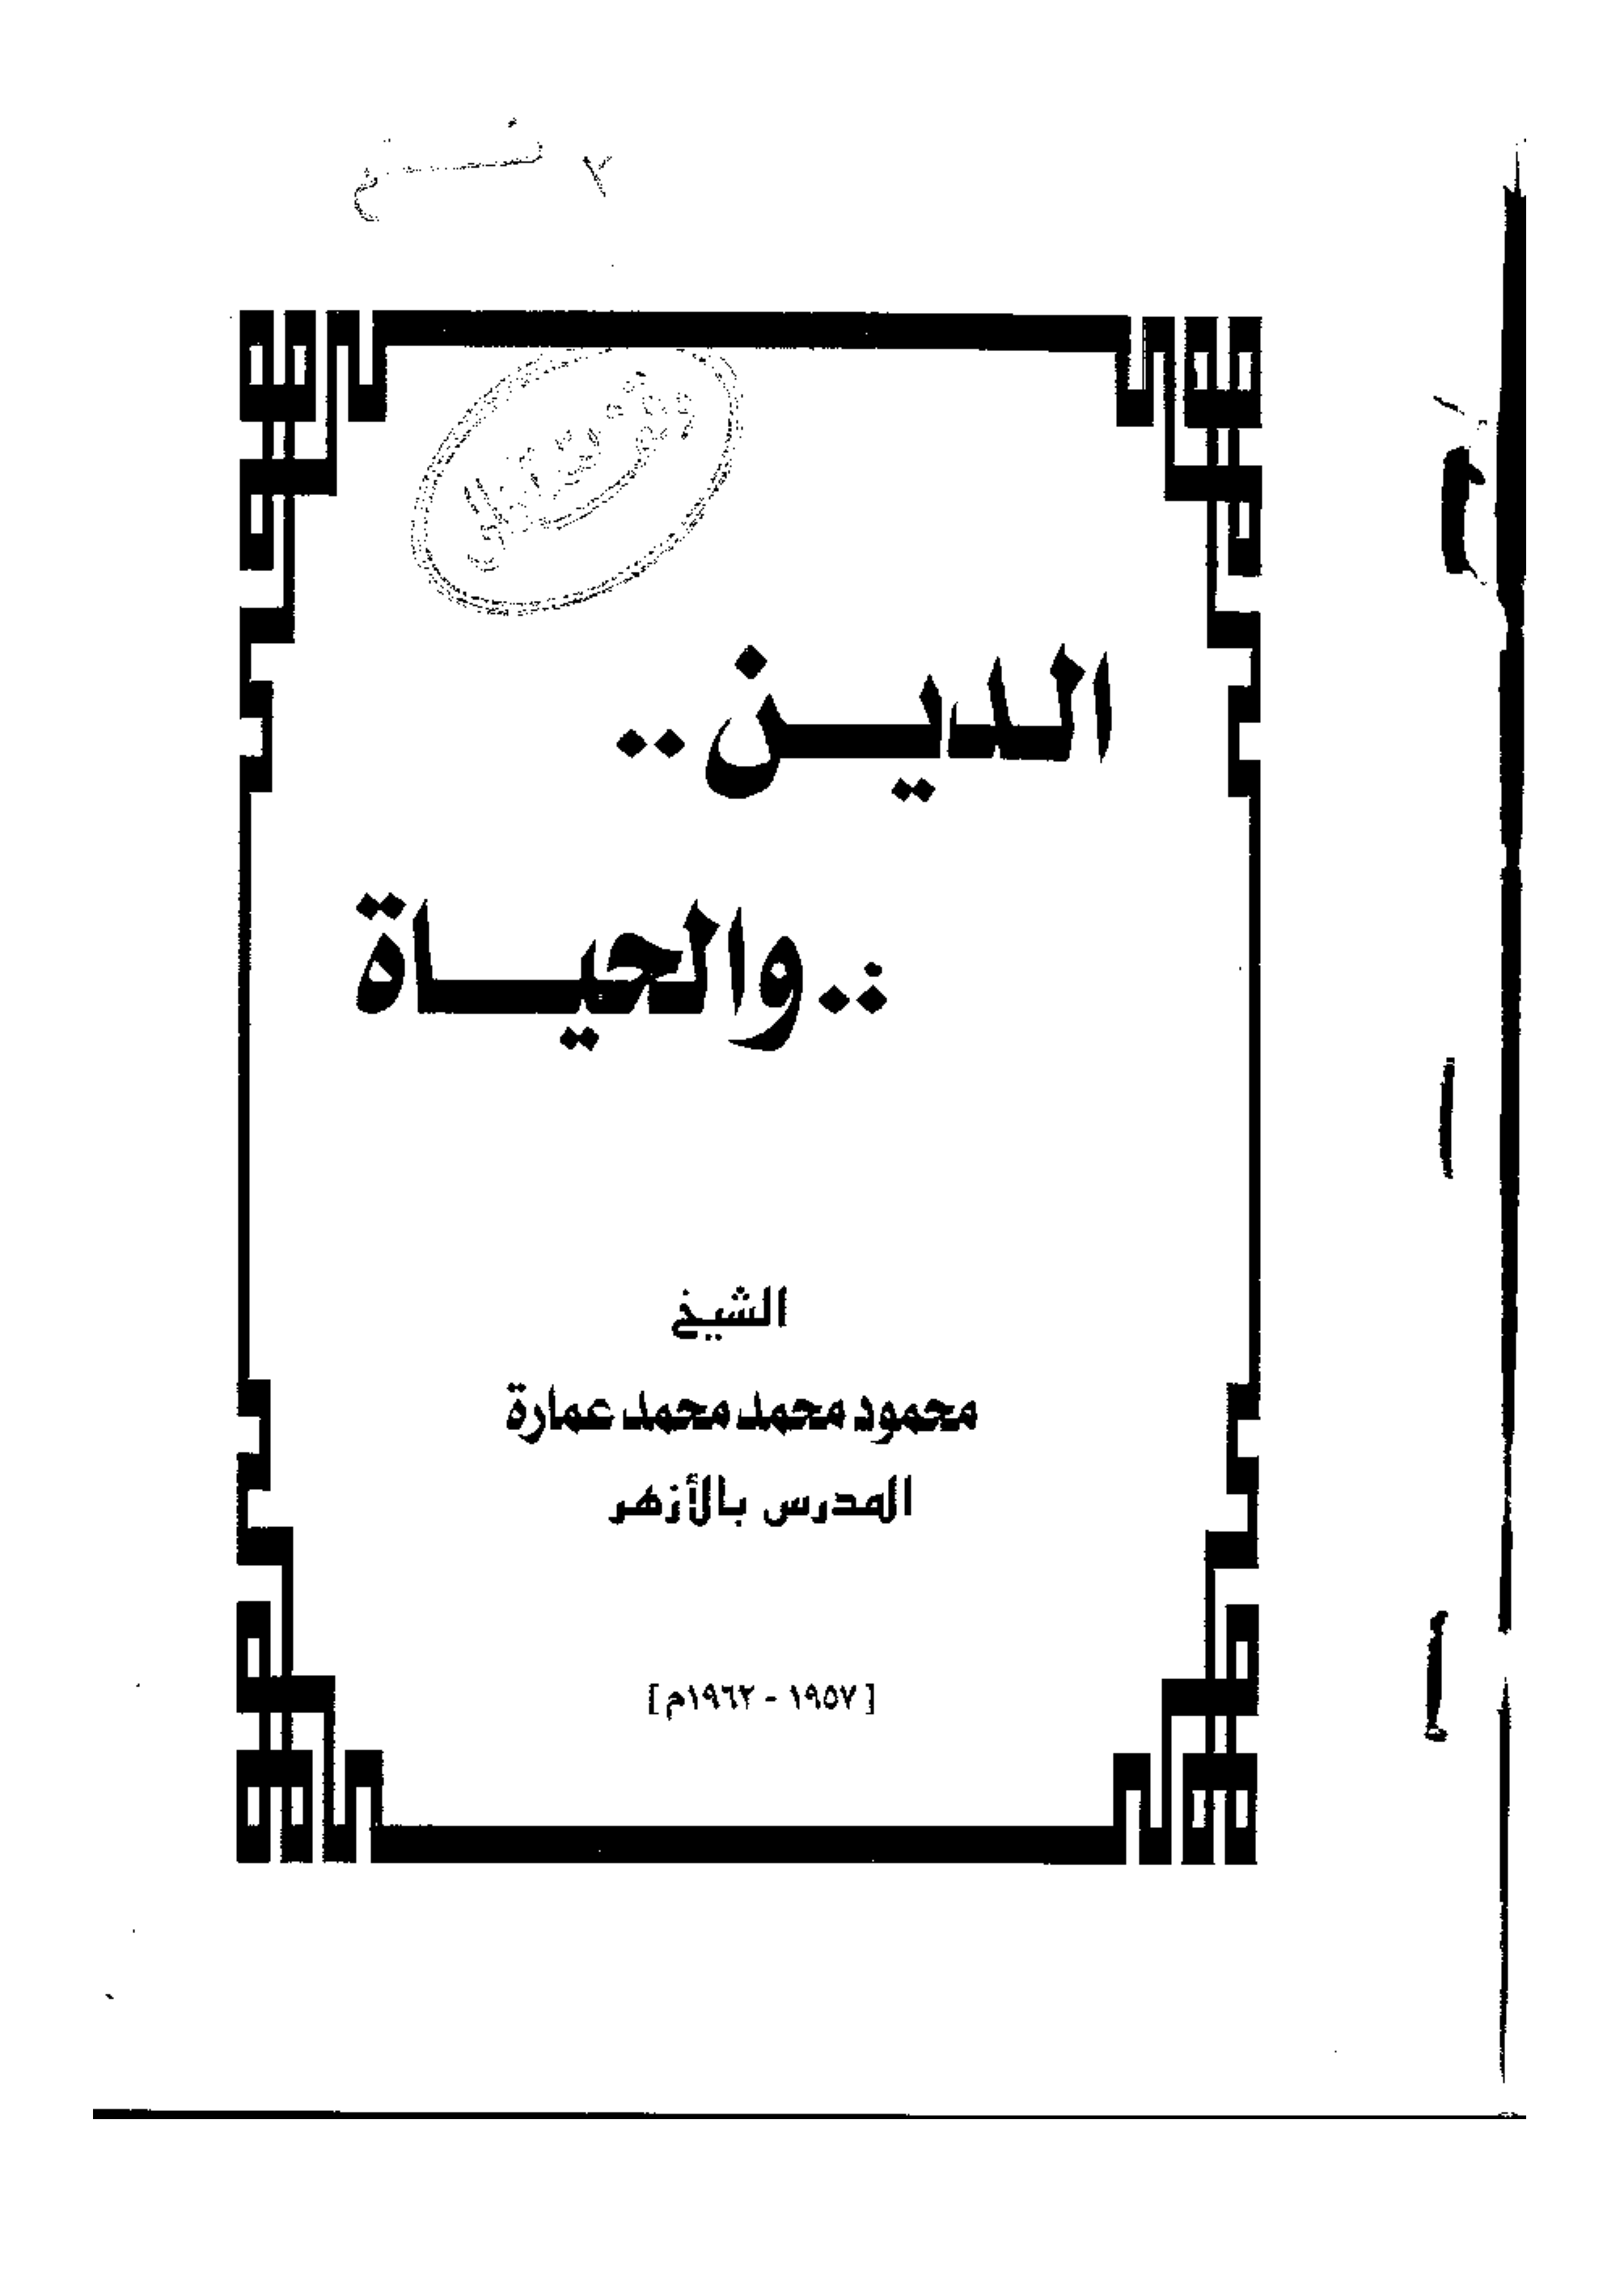 الدين..
..والحياة
الشيخ
محمود محمد محمد عمارة
المدرس بالأزهر
[١٩٥٧ - ١٩٦٢م]